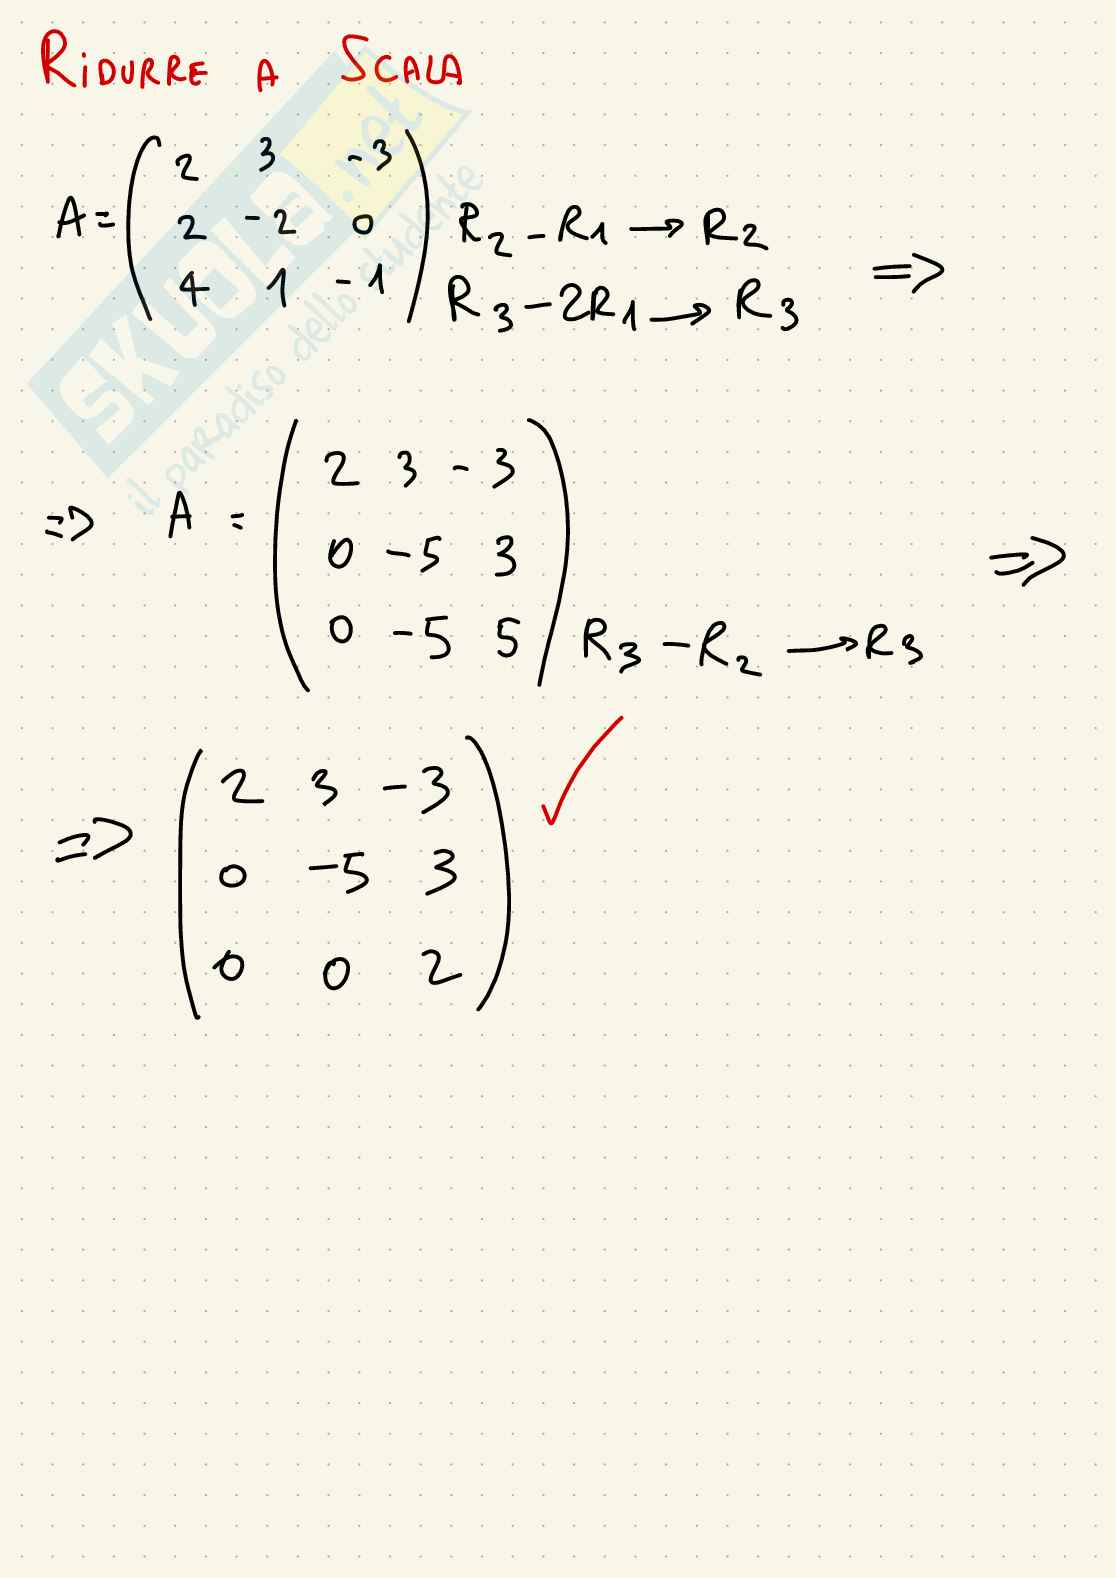 RIDURRE A SCALA
2 3 -3
A= 2 -2 0 R2 - R1 → R2
4 1 -1 R3 - 2R1 → R3 ⇒
2 3 -3
⇒ A = 0 -5 3 ⇒
0 -5 5 R3 - R2 → R3
2 3 -3 ✓
⇒ 0 -5 3
0 0 2
SKUOLA.net
il paradiso dello studente